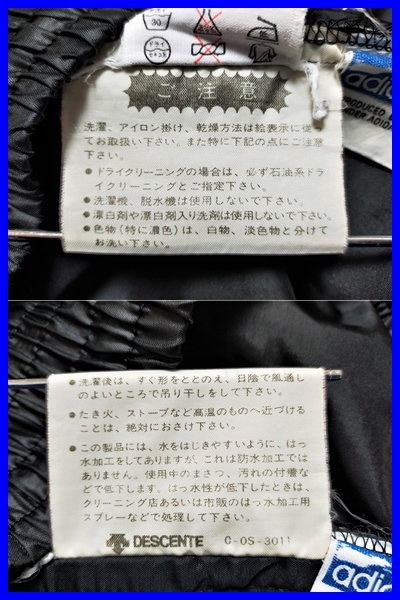 30
ドライ
ドライ
セキユ系
ご注意
洗濯、アイロン掛け、乾燥方法は絵表示に従っ
てお取扱い下さい。また特に下記の点にご注意
下さい。
●ドライクリーニングの場合は、必ず石油系ドラ
イクリーニングとご指定下さい。
●洗濯機、脱水機は使用しないで下さい。
●漂白剤や漂白剤入り洗剤は使用しないで下さい。
●色物(特に濃色)は、白物、淡色物と分けて
お洗い下さい。
adid
PRODUCED
●洗濯後は、すぐ形をととのえ、日陰で風通し
のよいところで吊り干しをして下さい。
●たき火、ストーブなど高温のものへ近づける
ことは、絶対におさけ下さい。
●この製品には、水をはじきやすいように、はっ
水加工をしてありますが、これは防水加工では
ありません。使用中のまさつ、汚れの付着な
どで低下します。はっ水性が低下したときは、
クリーニング店あるいは市販のはっ水加工用
スプレーなどで処理して下さい。
DESCENTE C-OS-3011
adid